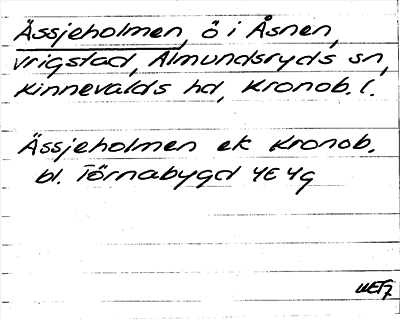 Ässjeholmen, ö i Åsnen,
Vrigstad, Almundsryds sn,
Kinnevalds hd, Kronob. l.
Ässjeholmen ek Kronob.
bl. Törnabygd 4E4g